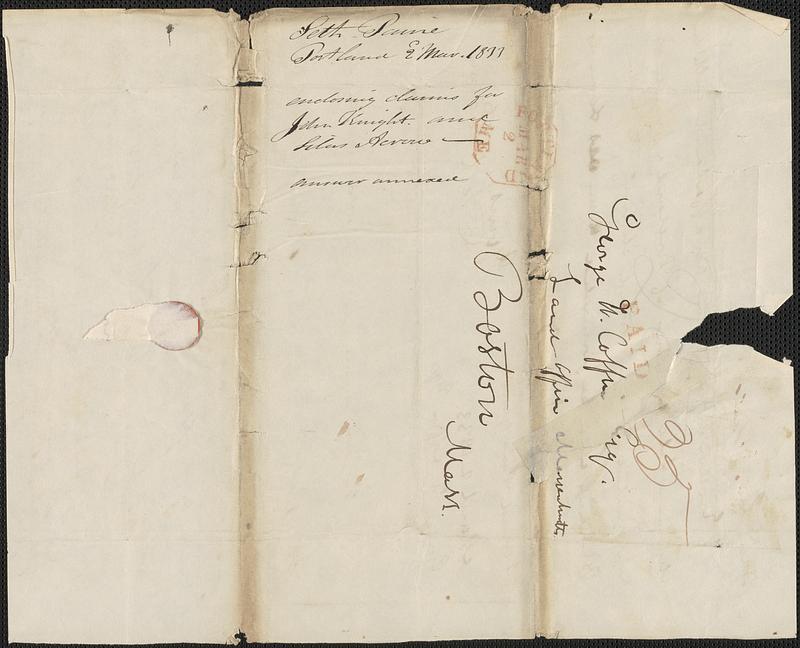 Seth Paine
Portland 2 Mar. 1833
enclosing claims for
John Knight and
Silas
answer annexed
PORTLAND
MAR
2
ME
George W. Coffin Esq.
Land Office Massachusetts
Boston
Mass.
PAID
25